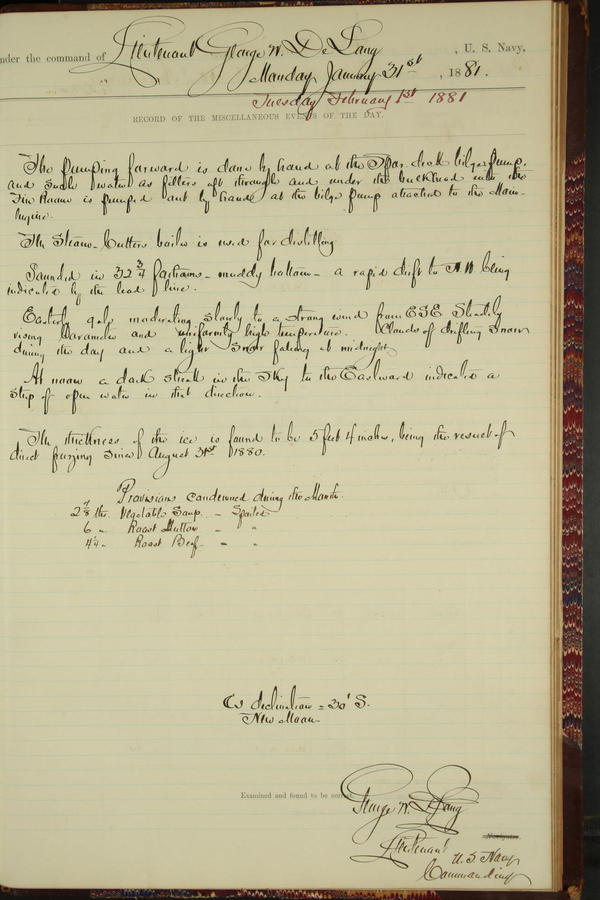 nder the command of Lieutenant George W. De Long, U. S. Navy,
Monday January 31st, 1881.
Tuesday February 1st 1881
RECORD OF THE MISCELLANEOUS EVENTS OF THE DAY.
The pumping forward is done by hand at the Spar deck bilge pump,
and such water as filters aft through and under the bulkhead into the
Fire Room is pumped out by hand at the bilge pump attached to the Main-
Engine.
The Steam-Cutters boiler is used for distilling
Sounded in 32 3/4 fathoms - muddy bottom - a rapid drift to N.W. being
indicated by the lead line.
Easterly gale moderating slowly to a strong wind from ESE Steadily
rising barometer and uniformly high temperature. Clouds of drifting snow
during the day and a light snow falling at midnight
At noon a dark streak in the sky to the Eastward indicated a
strip of open water in that direction.
The thickness of the ice is found to be 5 feet 4 inches, being the result of
direct freezing since August 31st 1880.
Provisions condemned during the Month
2 7/8 lbs. Vegetable Soup - Spoiled
6 " Roast Mutton - "
" Roast Beef - "
declination = 30' S.
New Moon
Examined and found to be correct.
George W. De Long
Navigator.
Lieutenant
U.S. Navy
Commanding